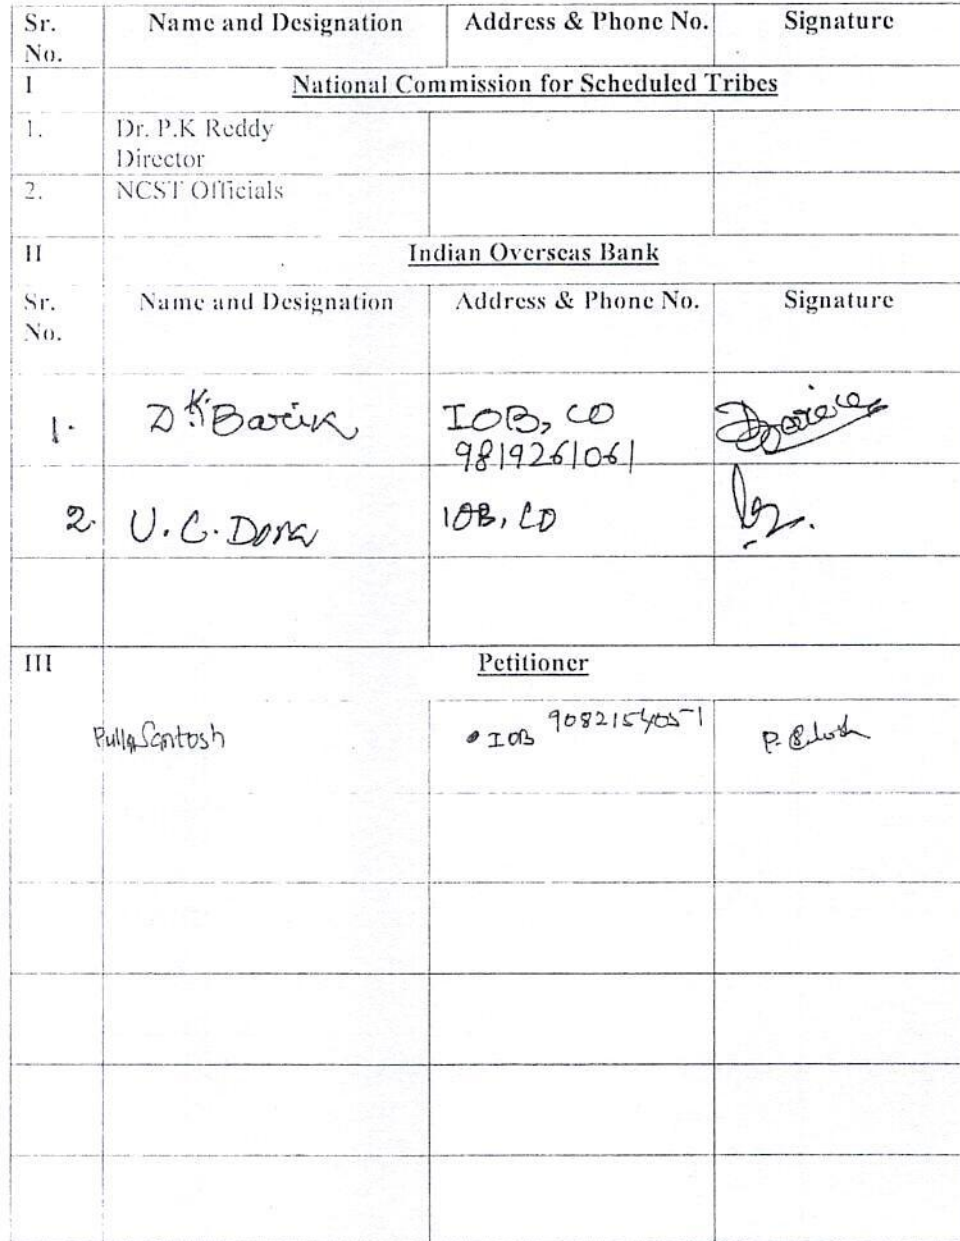 Sr. No. Name and Designation Address & Phone No. Signature
I National Commission for Scheduled Tribes
1. Dr. P.K Reddy
Director
2. NCST Officials
II Indian Overseas Bank
Sr. No. Name and Designation Address & Phone No. Signature
1. D K. Barik IOB, CO
9819261061
2. U. C. Dora IOB, CO
III Petitioner
Pulla Santosh IOB